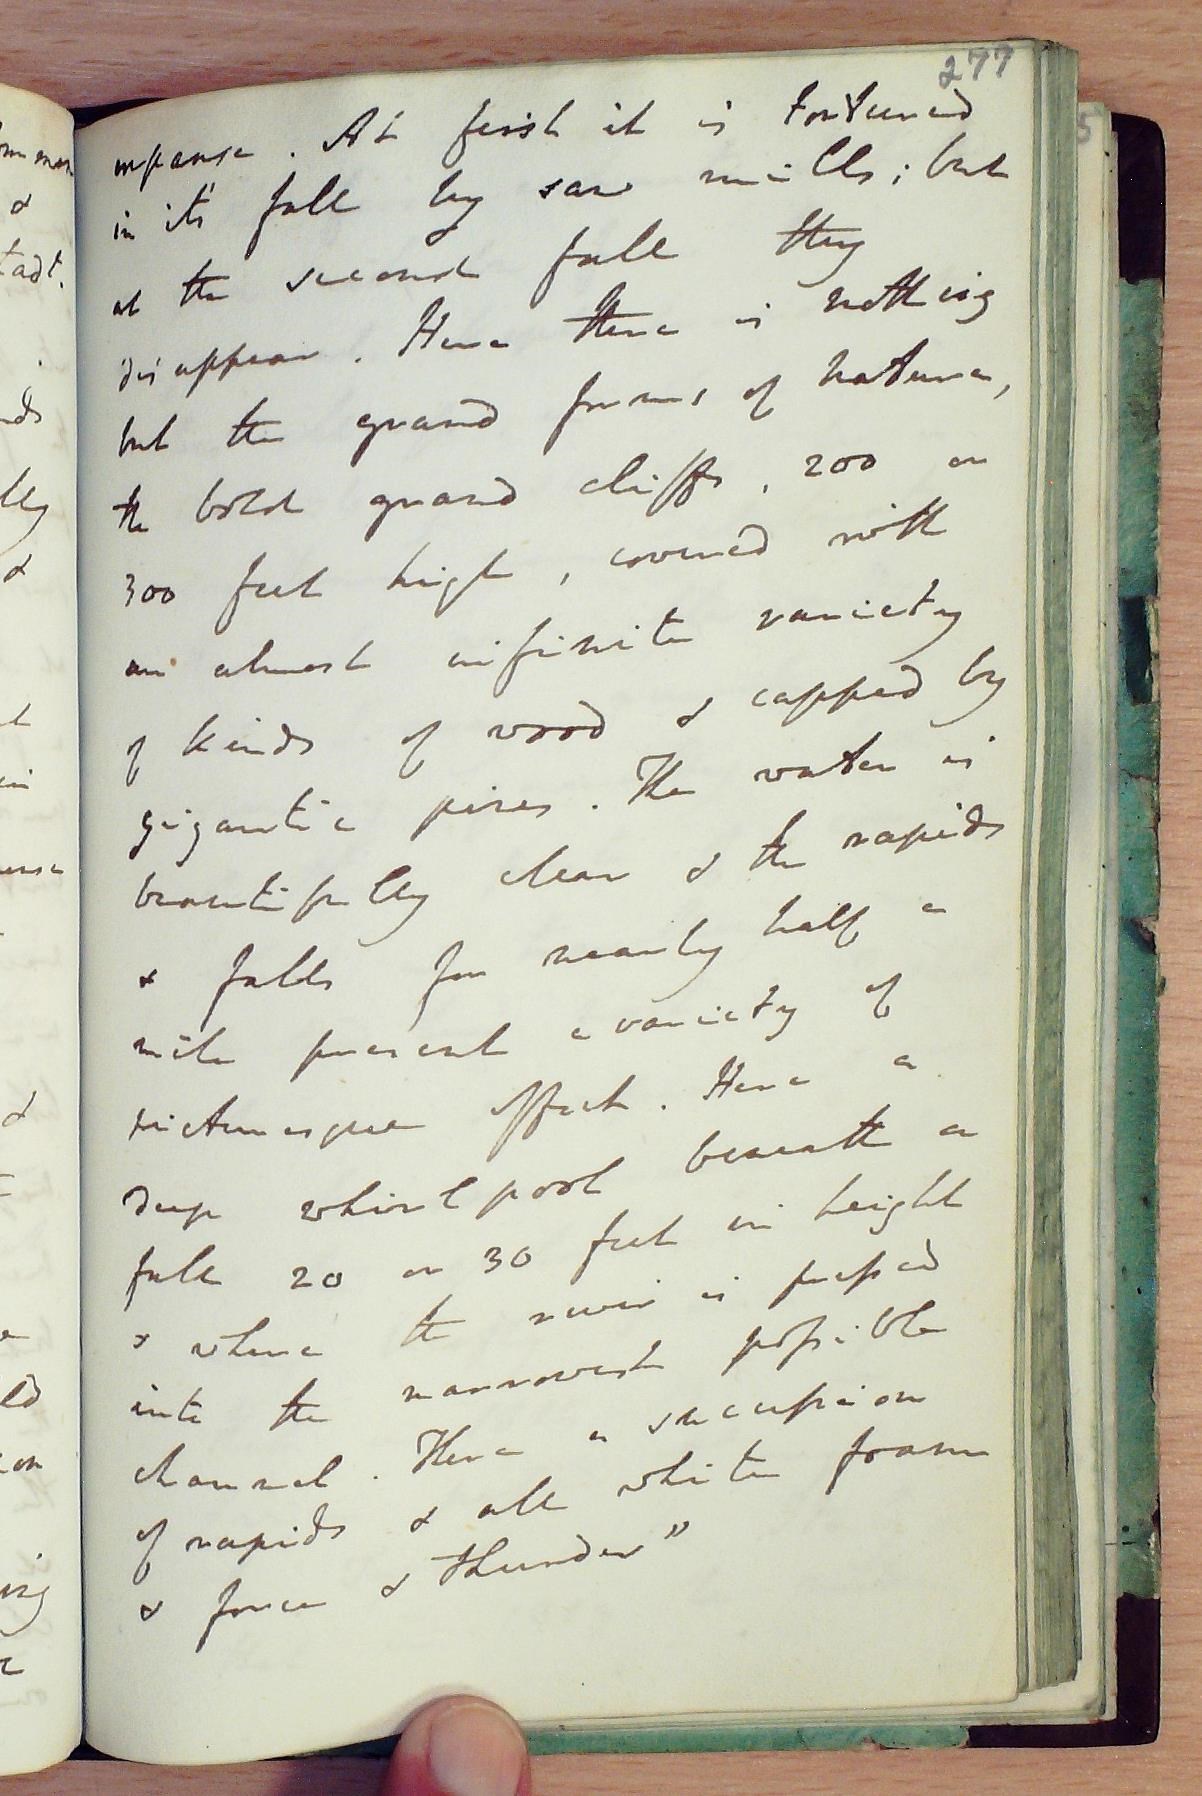 277
expanse. At first it is tortured
in it's fall by saw mills; but
at the second fall they
disappear. Here there is nothing
but the grand forms of nature,
the bold grand cliffs, 200 or
300 feet high, covered with
an almost infinite variety
of kinds of wood & capped by
gigantic pines. The water is
beautifully clear & the rapids
& falls for nearly half a
mile present a variety of
picturesque effect. Here a
deep whirlpool beneath a
fall 20 or 30 feet in height
& where the river is pressed
into the narrowest possible
channel. There a succession
of rapids & all white foam
& force & thunder"